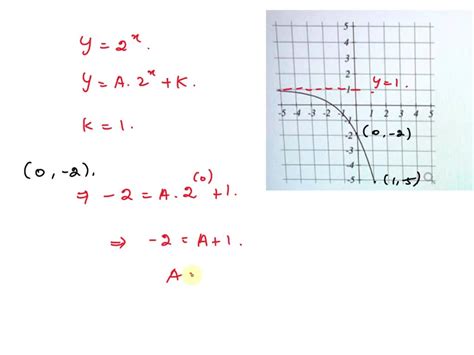 y = 2^x.
y = A. 2^x + K.
K = 1.
(0, -2).
⇒ -2 = A. 2^(0) + 1.
⇒ -2 = A + 1.
A =
5
4
3
2
y = 1.
1
-5 -4 -3 -2 -1 0 1 2 3 4 5
-1
-2
(0, -2)
-3
-4
-5
(1, -5)